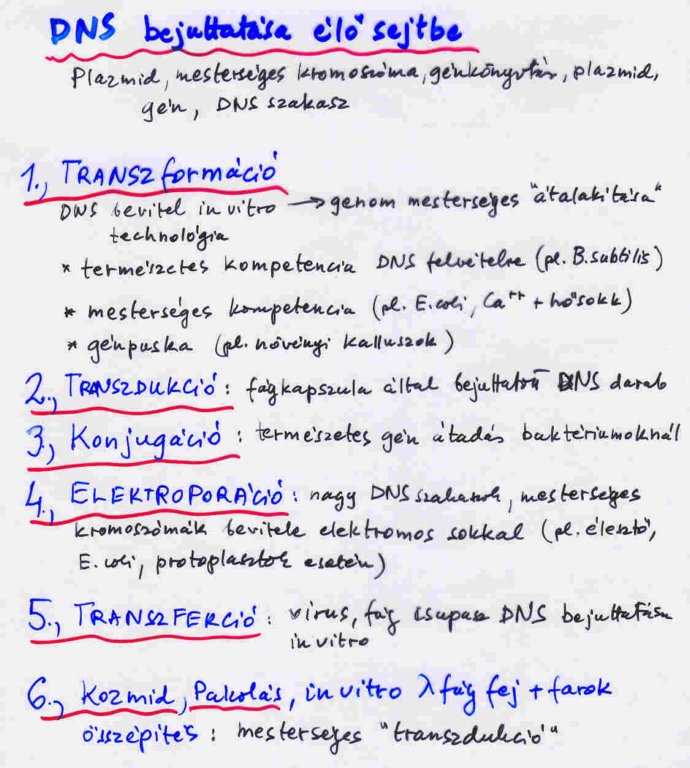 DNS bejuttatása élő sejtbe
Plazmid, mesterséges kromoszóma, génkönyvtár, plazmid,
gén, DNS szakasz
1., TRANSZformáció
DNS bevitel in vitro → genom mesterséges "átalakítása"
technológia
* természetes kompetencia DNS felvételre (pl. B. subtilis)
* mesterséges kompetencia (pl. E. coli, Ca++ + hősokk)
* génpuska (pl. növényi kalluszok)
2., TRANSZDUKCIÓ: fágkapszula által bejuttatott DNS darab
3., Konjugáció: természetes gén átadás baktériumoknál
4., ELEKTROPORÁCIÓ: nagy DNS szakaszok, mesterséges
kromoszómák bevitele elektromos sokkal (pl. élesztő,
E. coli, protoplasztok esetén)
5., TRANSZFEKCIÓ: vírus, fág csupasz DNS bejuttatása
in vitro
6., Kozmid, Pakolás, in vitro λ fág fej + farok
összépítés: mesterséges "transzdukció"